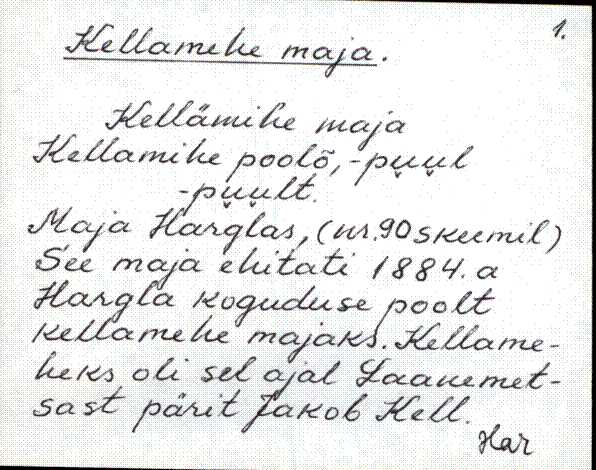 1.
Kellamehe maja.
Kellämihe maja
Kellamihe poolõ, -pu̬u̬l
-pu̬u̬lt.
Maja Harglas, (nr. 90 skeemil)
See maja ehitati 1884. a
Hargla koguduse poolt
kellamehe majaks. Kellame-
heks oli sel ajal Laanemet-
sast pärit Jakob Kell.
Har